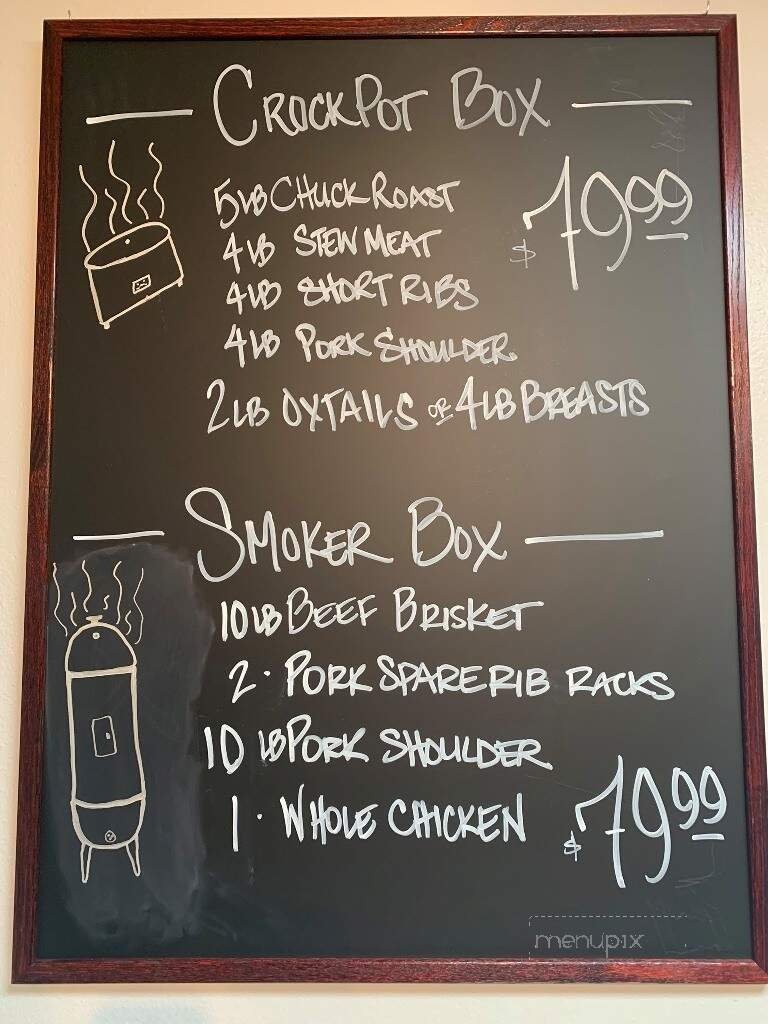 CROCKPOT BOX
5LB CHUCK ROAST
$79.99
4LB STEW MEAT
4LB SHORT RIBS
4LB PORK SHOULDER
2LB OXTAILS OR 4LB BREASTS
SMOKER BOX
10LB BEEF BRISKET
2 · PORK SPARERIB RACKS
10 LB PORK SHOULDER
1 · WHOLE CHICKEN
$79.99
menupix